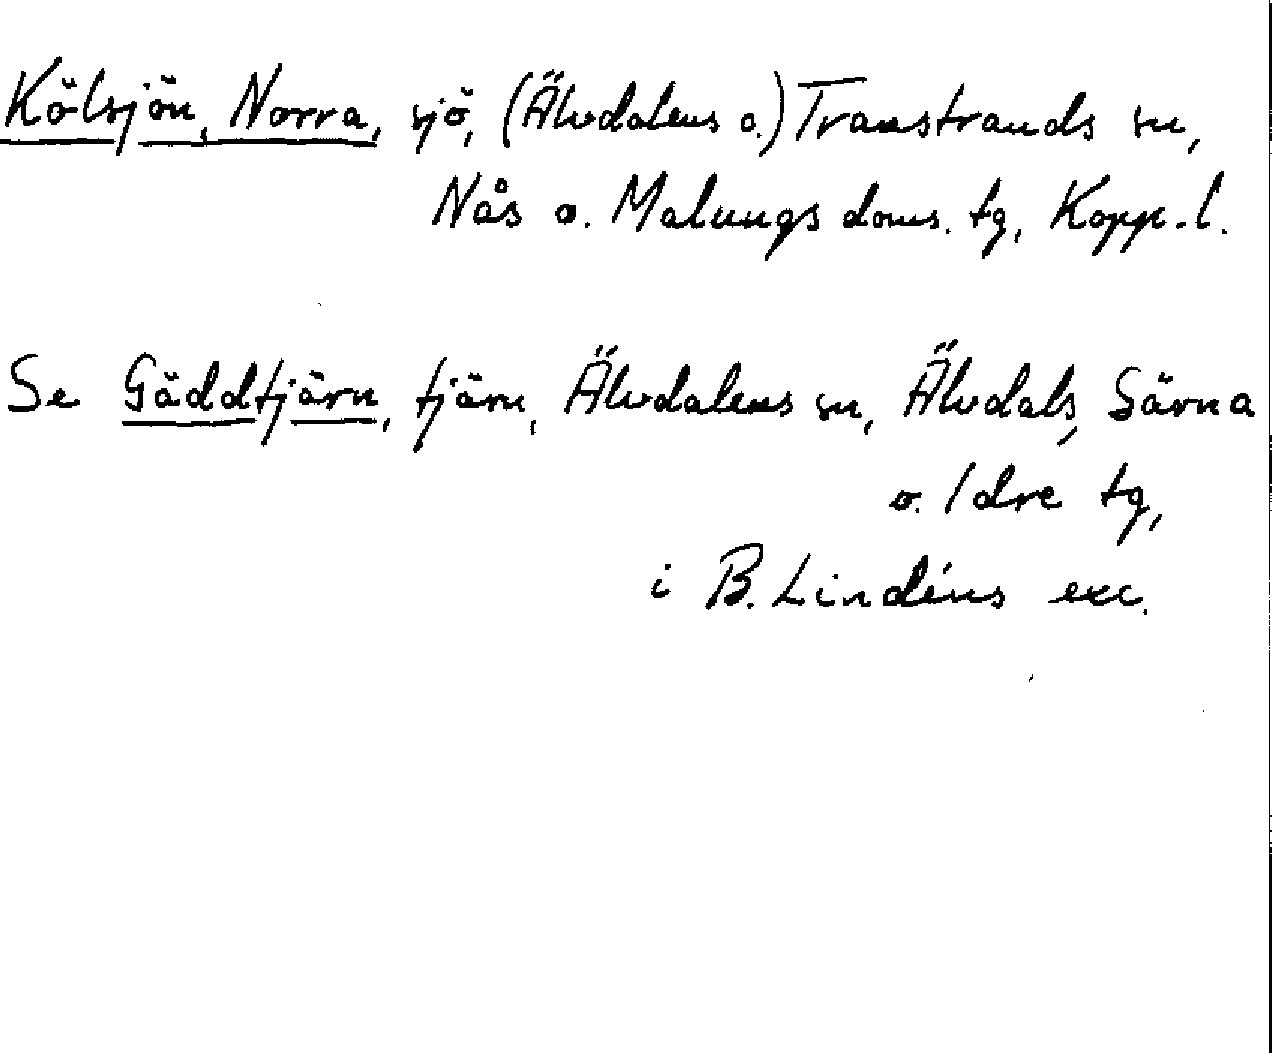 Kölsjön, Norra, sjö, (Älvdalens o.) Transtrands sn,
Nås o. Malungs doms. tg, Kopp. l.
Se Gäddtjärn, tjärn, Älvdalens sn, Älvdals, Särna
o. Idre tg,
i B. Lindéns exc.